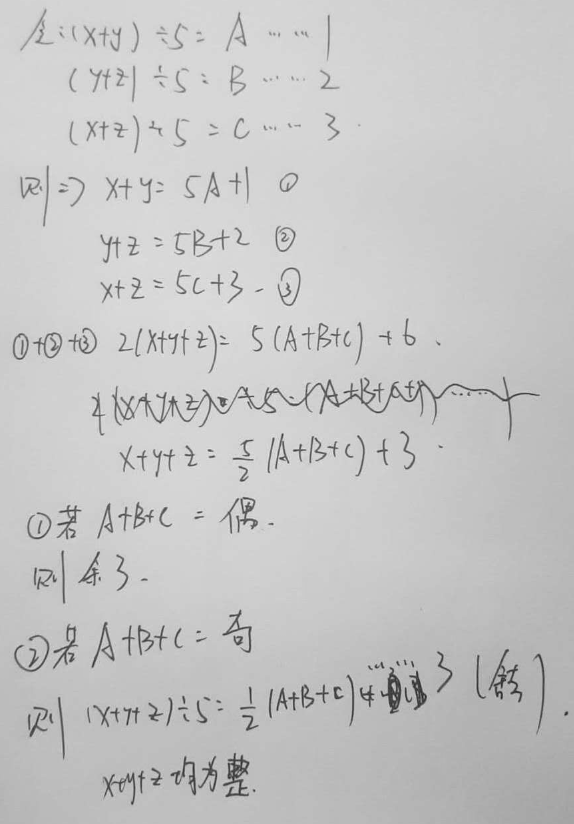 (x+y)÷5=A……1
(y+z)÷5=B……2
(x+z)÷5=C……3
则=> x+y=5A+1 ①
y+z=5B+2 ②
x+z=5C+3 - ③
①+②+③ 2(x+y+z)=5(A+B+C)+6.
x+y+z=5/2(A+B+C)+3.
①若 A+B+C=偶.
则余3.
②若 A+B+C=奇
则 (x+y+z)÷5=1/2(A+B+C)……3(舍去).
x+y+z均为整.